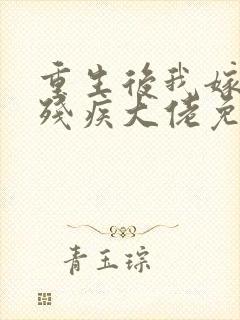 重生後我嫁
殘疾大佬免
青玉琮